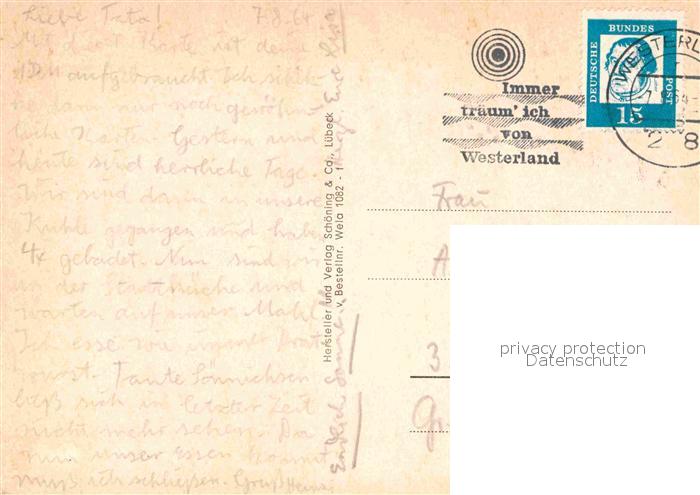 Liebe Tata! 7.8.64
Mit dieser Karte ist deine
aufgebraucht. Ich schik-
ke dann nur noch gewöhn-
liche Karten. Gestern und
heute sind herrliche Tage.
Wir sind dann in unsere
Kuhle gegangen und haben
4x gebadet. Nun sind wir
in der Strandküche und
warten auf unser Mahl.
Ich esse wie
wurst. Tante Sönnichsen
ließ sich in letzter Zeit
nicht mehr sehen. Da
nun unser Essen kommt
muß ich schließen. Gruß
Endlich Sonne
Hersteller und Verlag Schöning & Co., Lübeck
v. Bestellnr. Wela 1082 - f
Immer
träum' ich
von
Westerland
DEUTSCHE
BUNDES
POST
15
WESTERL
Frau
A
3
privacy protection
Datenschutz